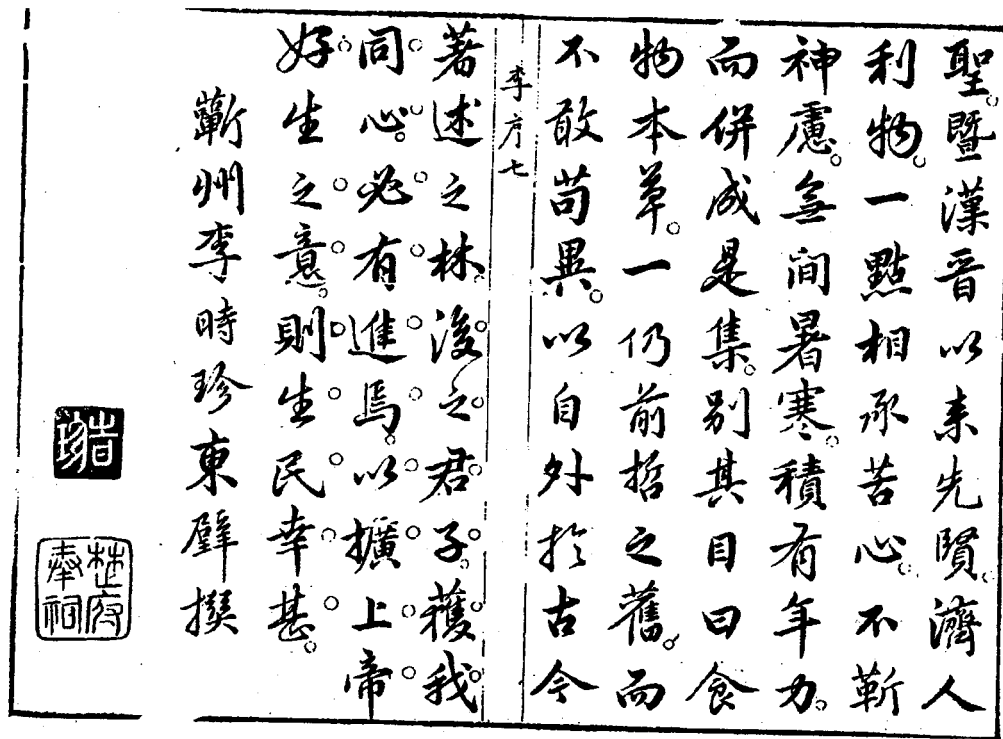 聖。暨漢晉以来先賢。濟人
利物。一點相承苦心。不蘄
神慮。無间暑寒。積有年力。
而併成是集。别其目曰食
物本草。一仍前哲之舊。而
不敢苟異。以自外於古今
李序七
著述之林。後之君子。穫我
同心。必有進焉。以擴上帝
好生之意。則生民幸甚。
蘄州李時珍東璧撰
時珍
楚府奉祠